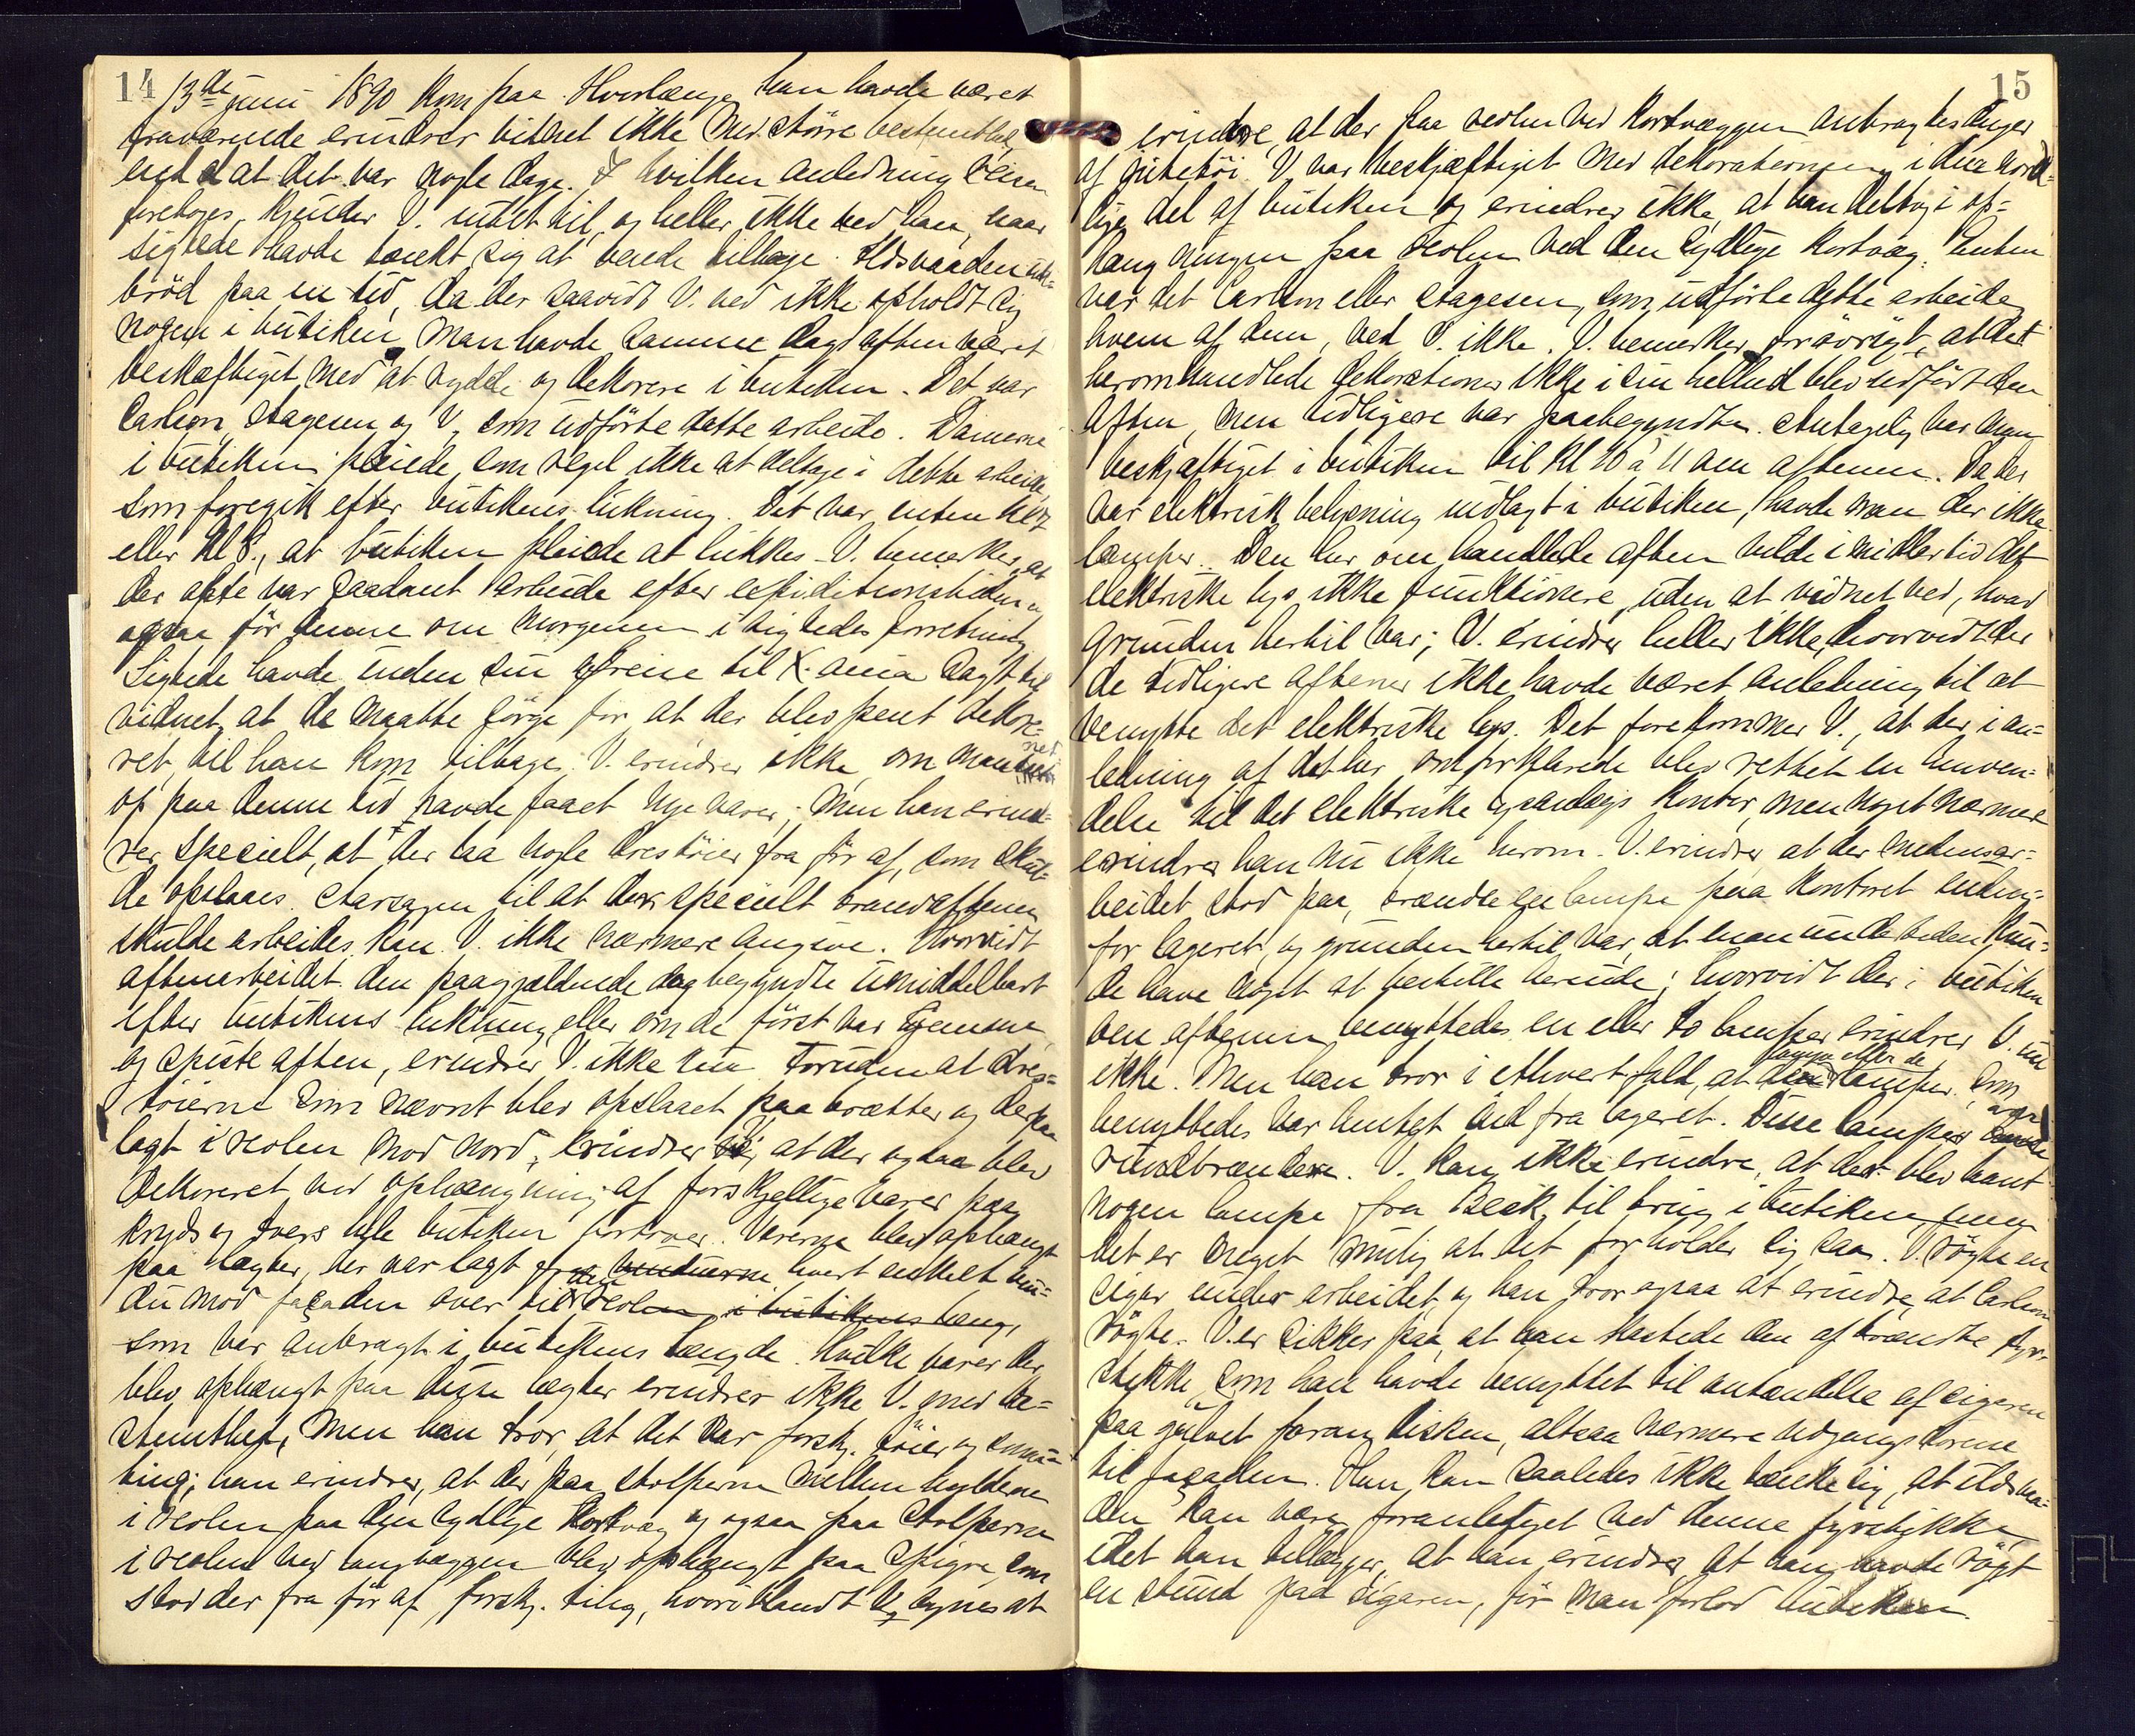 14
13de juni 1890 kom paa. Hvorlænge han havde været
fraværende erindrer vidnet ikke med större bestemthed,
end at det var nogle dage. I hvilken anledning reisen
foretoges, kjender V. intet til, og heller ikke ved han, naar
sigtede havde tænkt sig at vende tilbage. Ildsvaaden ud-
bröd paa en tid, da der saavidt V. ved ikke opholdt sig
nogen i butiken. Man havde samme dags aften været
beskæftiget med at rydde og dekorere i butiken. Det var
Carlson, Stagesen og V., som udförte dette arbeide. Damerne
i butiken pleiede som regel ikke at deltage i dette arbeide,
som foregik efter butikens lukning. Det var enten kl 7
eller kl 8., at butiken pleiede at lukkes. V. bemerker, at
der ofte var saadant arbeide efter expeditionstiden og
ogsaa för denne om morgenen i sigtedes forretning.
Sigtede havde inden sin afreise til X.ania sagt til
vidnet, at de maatte sörge for, at der blev pent dekore-
ret, til han kom tilbage. V. erindrer ikke, om man net
op paa denne tid havde faaet nye varer; men han erind-
rer specielt, at der laa nogle krestöier fra för af, som skul-
de opslaaes. Aarsagen til at der specielt brandaftenen
skulde arbeides, kan V. ikke nærmere angive. Hvorvidt
aftenarbeidet den paagjældende dag begyndte umiddelbart
efter butikens lukning, eller om de först var hjemme
og spiste aften, erindrer V. ikke nu. Foruden at kres-
töierne som nævnt blev opslaaet paa brætter og derpaa
lagt i reolen mod nord, erindrer V., at der ogsaa blev
dekoreret ved ophængning af forskjellige varer paa
kryds og tvers hele butiken forover. Varerne blev ophængt
paa lægter, der var lagt fra vinduerne, hvert enkelt vin-
du mod façaden over til reolen i butikens læng,
som var anbragt i butikens længde. Hvilke varer der
blev ophængt paa disse lægter erindrer ikke V. med be-
stemthed, men han tror, at det var forskj. töier og smaa-
ting; han erindrer, at der paa stolperne mellem hylderne
i reolen paa den sydlige kortvæg og ogsaa paa stolperne
i reolen ved langvæggen blev ophængt paa spigre, som
stod der fra för af, forskj. ting, hvoriblandt V. synes at
15
erindre, at der paa reolen ved kortvæggen anbragtes duger
af jutetöi. V. var beskjæftiget med dekorationen i den nord-
lige del af butiken og erindrer ikke, at han deltog i op-
hængningen paa reolen ved den sydlige kortvæg. Enten
var det Carlson eller Stagesen, som udförte dette arbeide,
hvem af dem, ved V. ikke. V. bemerker forövrigt, at det
heromhandlede dekorationer ikke i sin helhed blev udfört den
aften, men tidligere var paabegyndt. Antagelig var man
beskjæftiget i butiken til kl 10 à 11 om aftenen. Da der
var elektrisk belysning indlagt i butiken, havde man der ikke
lamper. Den her omhandlede aften vilde imidlertid det
elektriske lys ikke funktionere, uden at vidnet ved, hvad
grunden hertil var; V. erindrer heller ikke, hvorvidt der
de tidligere aftener ikke havde været anledning til at
benytte det elektriske lys. Det forekommer V., at der i an-
ledning af det her omforklarede blev rettet en henven-
delse til det elektriske anlægs kontor, men noget nærmere
erindrer han nu ikke herom. V. erindrer at der medens ar-
beidet stod paa, brændte en lampe paa kontoret inden-
for lageret, og grunden hertil var, at man undertiden kun-
de have noget at bestille derinde; hvorvidt der i butiken
den aftenen benyttedes en eller to lamper erindrer V. nu
ikke. Men han tror i ethvert fald, at den lampe eller de lamper, som
benyttedes var hentet ind fra lageret. Disse lamper var
rundbrændere. V. kan ikke erindre, at der blev laant
nogen lampe fra Beck til brug i butiken, men
det er meget mulig at det forholder sig saa. V. rögte en
cigar under arbeidet, og han tror ogsaa at erindre, at Carlson
rögte. V. er sikker paa, at han kastede den afbrændte fyr-
stikke, som han havde benyttet til antændelse af cigaren
paa gulvet foran disken, altsaa nærmere udgangsdörene
til façaden. Han kan saaledes ikke tænke sig, at ildsvaa-
den kan være foranlediget ved denne fyrstikke,
idet han tillægger, at han erindrer, at han havde rögt
en stund paa cigaren, för man forlod butiken.